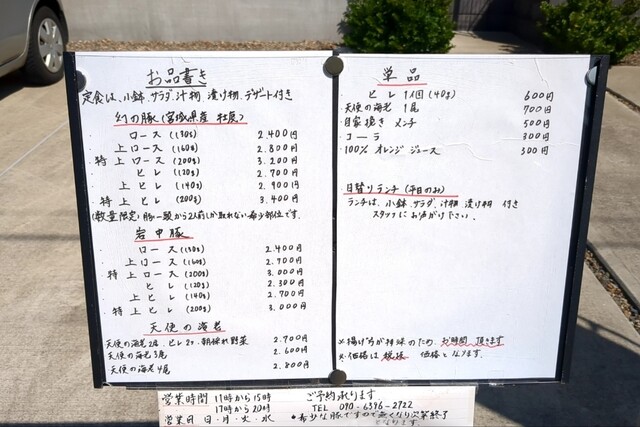 お品書き
定食は、小鉢、サラダ、汁物、漬け物、デザート付き
幻の豚(宮城県産 杜戻)
・ロース(130g) 2.400円
・上ロース(160g) 2.800円
・特上ロース(200g) 3.200円
・ヒレ(120g) 2.700円
・上ヒレ(140g) 2.900円
・特上ヒレ(200g) 3.400円
(数量限定)豚一頭から2人前しか取れない希少部位です。
岩中豚
・ロース(130g) 2.400円
・上ロース(160g) 2.700円
・特上ロース(200g) 3.000円
・ヒレ(120g) 2.300円
・上ヒレ(140g) 2.700円
・特上ヒレ(200g) 3.000円
天使の海老
天使の海老2尾、ヒレ2ヶ、朝採れ野菜 2.700円
天使の海老3尾 2.600円
天使の海老4尾 2.800円
単品
・ヒレ1個(40g) 600円
・天使の海老1尾 700円
・自家挽きメンチ 500円
・コーラ 300円
・100%オレンジジュース 300円
日替りランチ(平日のみ)
ランチは、小鉢、サラダ、汁物 漬け物 付き
スタッフにお声がけ下さい。
※揚げ方が特殊のため、お時間頂きます
※価格は税抜 価格となります。
営業時間 11時から15時
17時から20時
営業日 日・月・火・水
ご予約承ります
TEL 090-6396-2722
※希少な豚ですので無くなり次第終了
となります